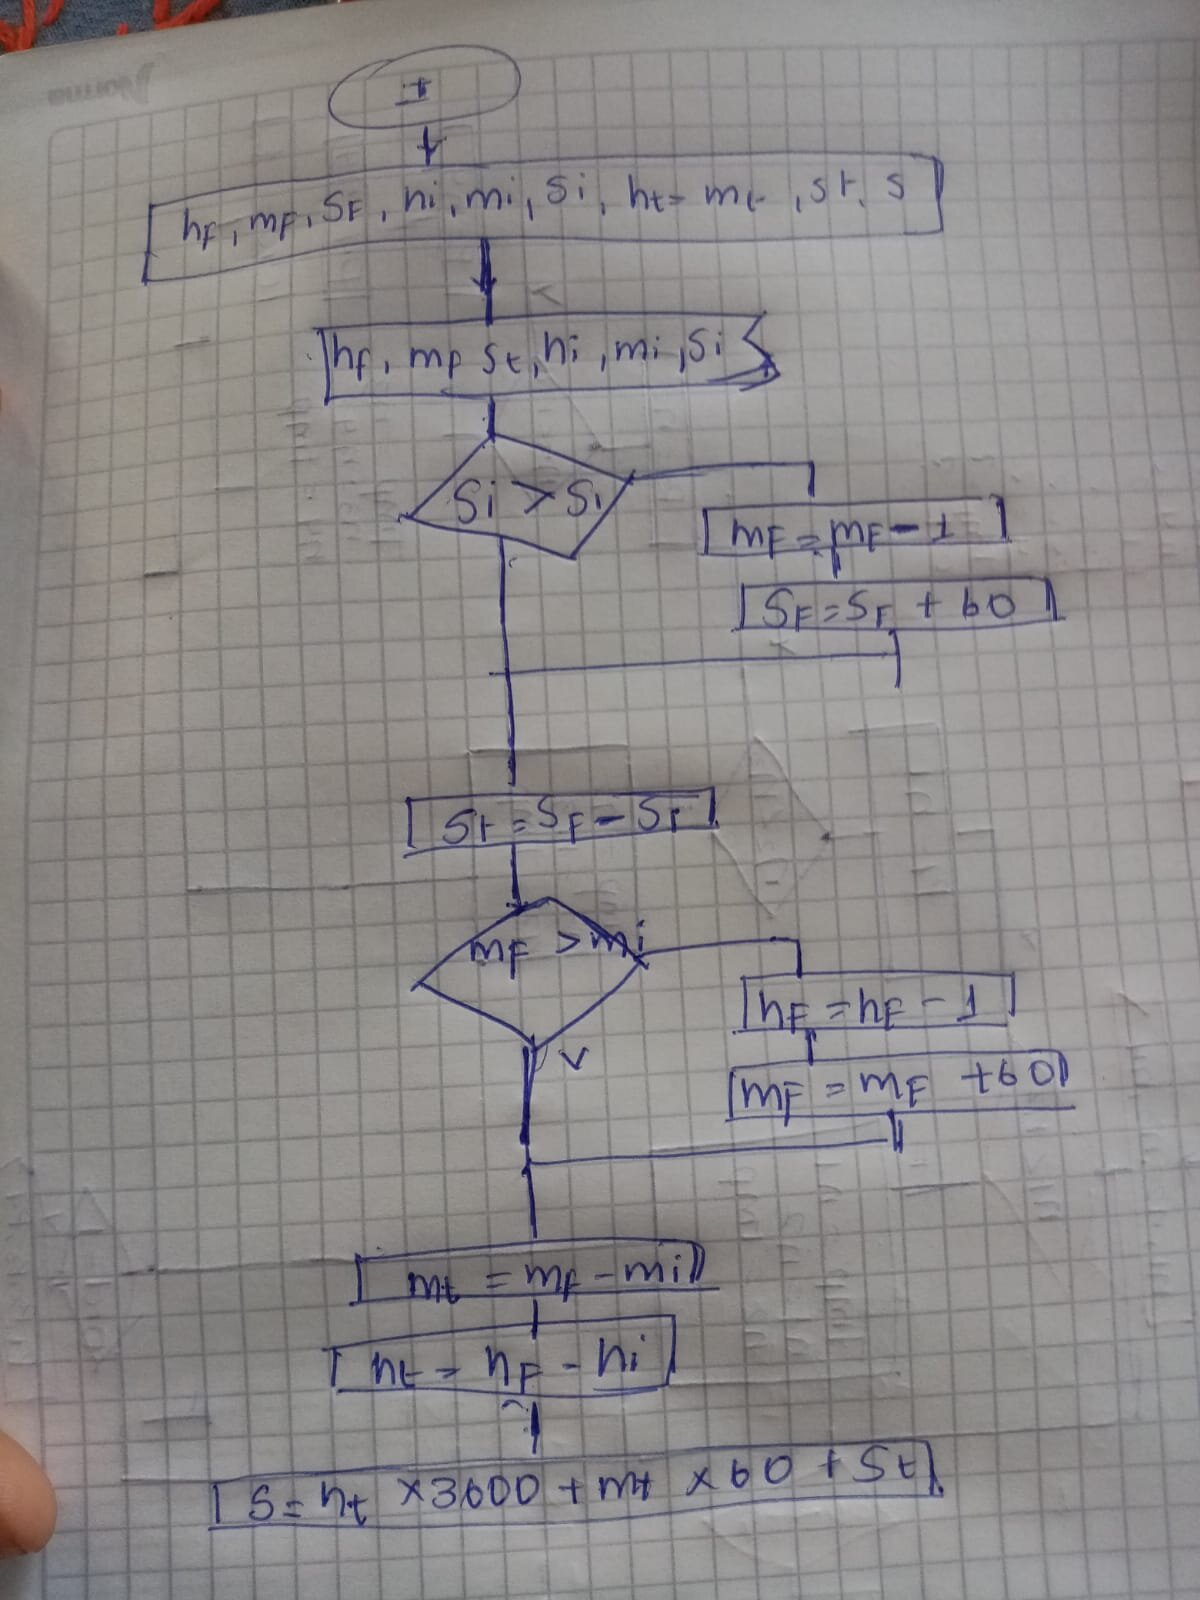 I
hf, mf, SF, hi, mi, Si, ht= mt, st, s
hf, mf St, hi, mi, Si
Si > Si
mF = mF - 1
SF = SF + 60
St = SF - Si
mF > mi
hF = hF - 1
V
mF = mF + 60
mt = mf - mi
ht = hF - hi
S = ht x 3600 + mt x 60 + St